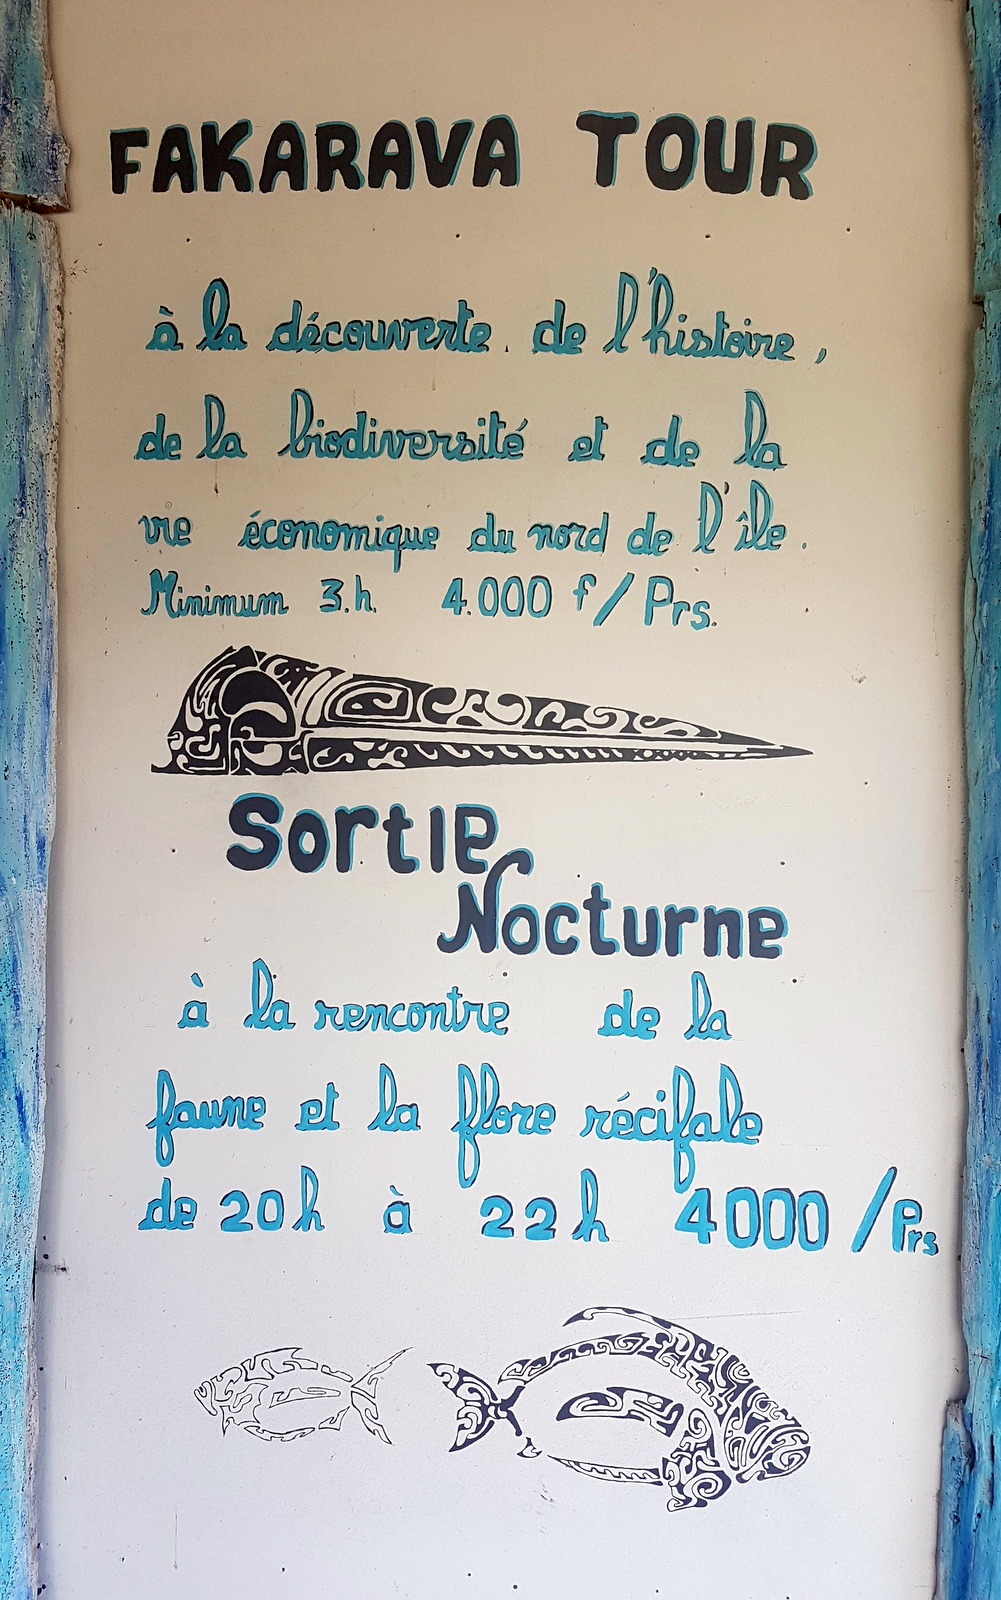 FAKARAVA TOUR
à la découverte. de l'histoire,
de la biodiversité et de la
vie économique du nord de l'île.
Minimum 3.h. 4.000 f/Prs.
Sortie
Nocturne
à la rencontre de la
faune et la flore récifale
de 20h à 22h 4000 /Prs